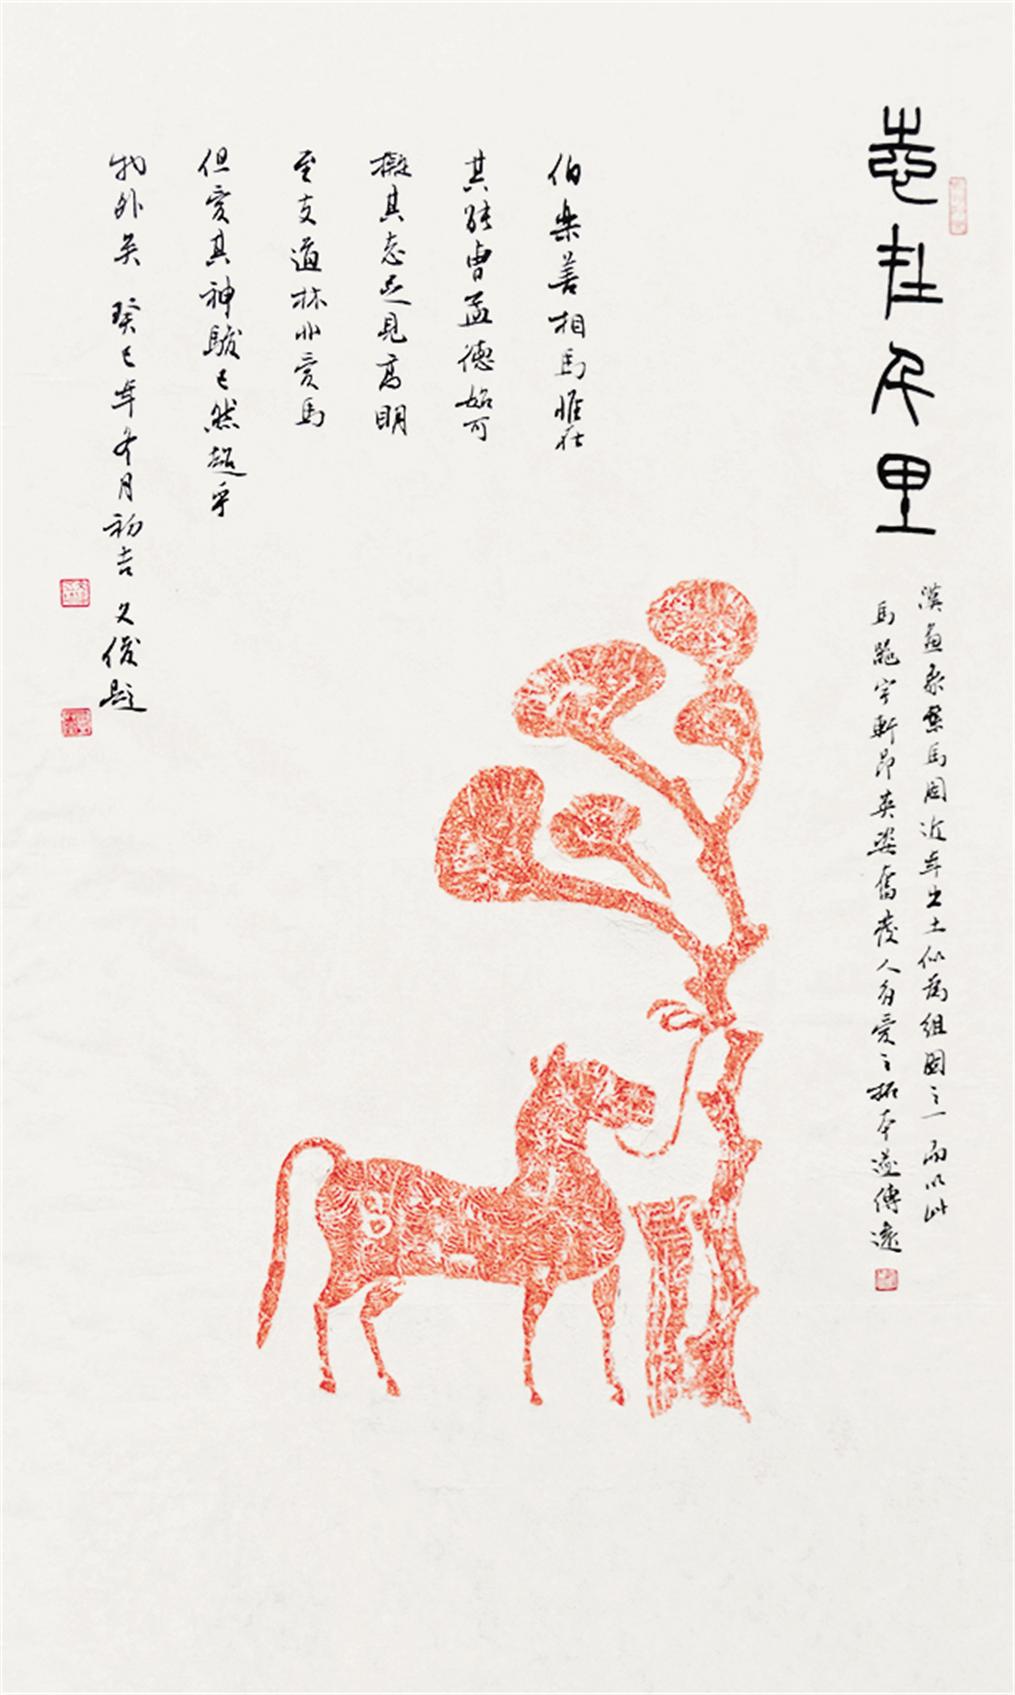 志在千里
漢畫桑繫馬圖近年出土似為組圖之一而以此
馬跪宇軒昂英姿奮發人自愛之拓本遂傳遠
伯樂善相馬惟在
其能曹孟德始可
擬其志足見高明
至支道林非愛馬
但愛其神駿已然超乎
物外矣 癸巳年冬月初吉 文俊題